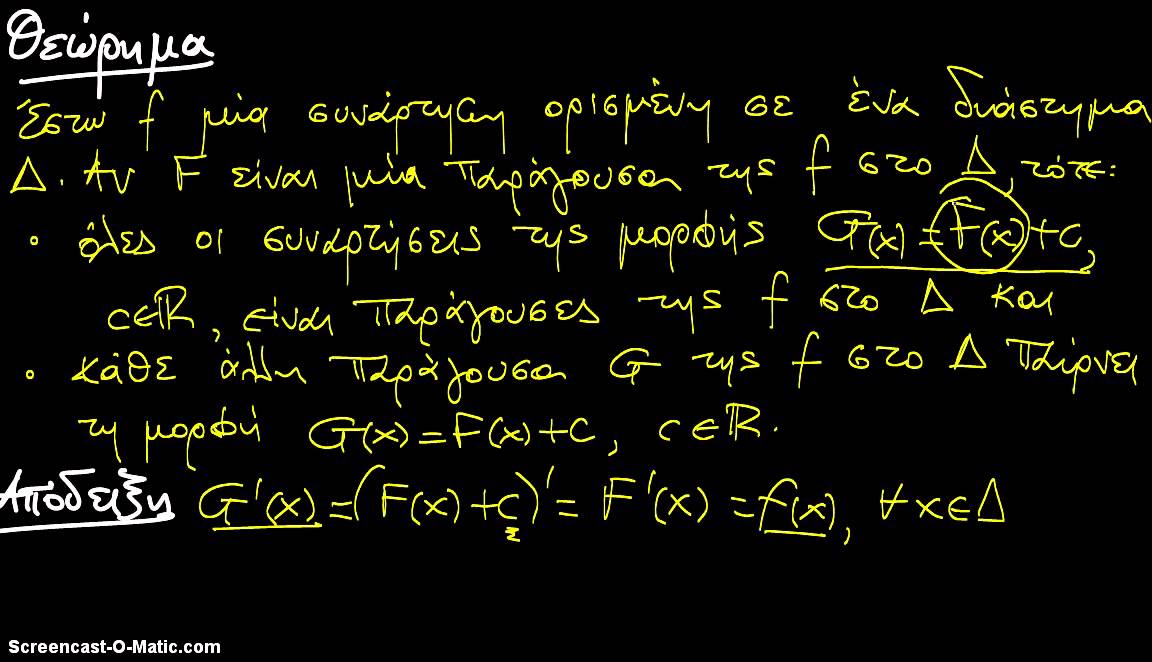 Θεώρημα
Έστω f μία συνάρτηση ορισμένη σε ένα διάστημα
Δ. Αν F είναι μία παράγουσα της f στο Δ, τότε:
• όλες οι συναρτήσεις της μορφής G(x) = F(x) + c,
c∈ℝ, είναι παράγουσες της f στο Δ και
• κάθε άλλη παράγουσα G της f στο Δ παίρνει
τη μορφή G(x) = F(x) + c, c∈ℝ.
Απόδειξη G'(x) = (F(x) + c)' = F'(x) = f(x), ∀x∈Δ
Screencast-O-Matic.com